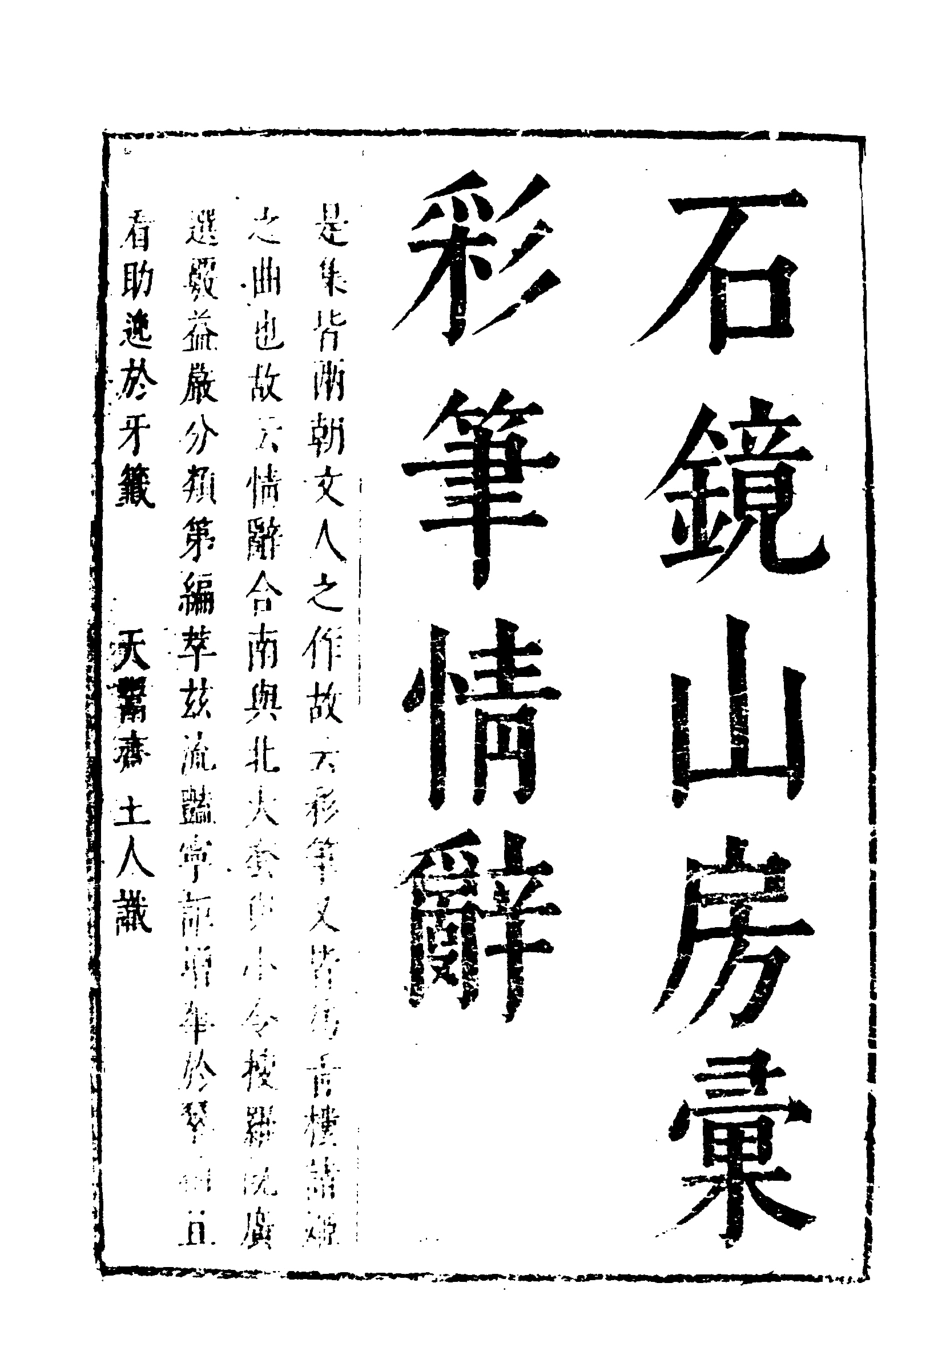 石鏡山房彙
彩筆情辭
是集皆兩朝文人之作故云彩筆又皆為青樓諸姬
之曲也故云情辭合南與北大套與小令搜羅既廣
選嚴益嚴分類第編萃茲流豔寧詎增華於琴且
看助逸於牙籤
天齋土人識